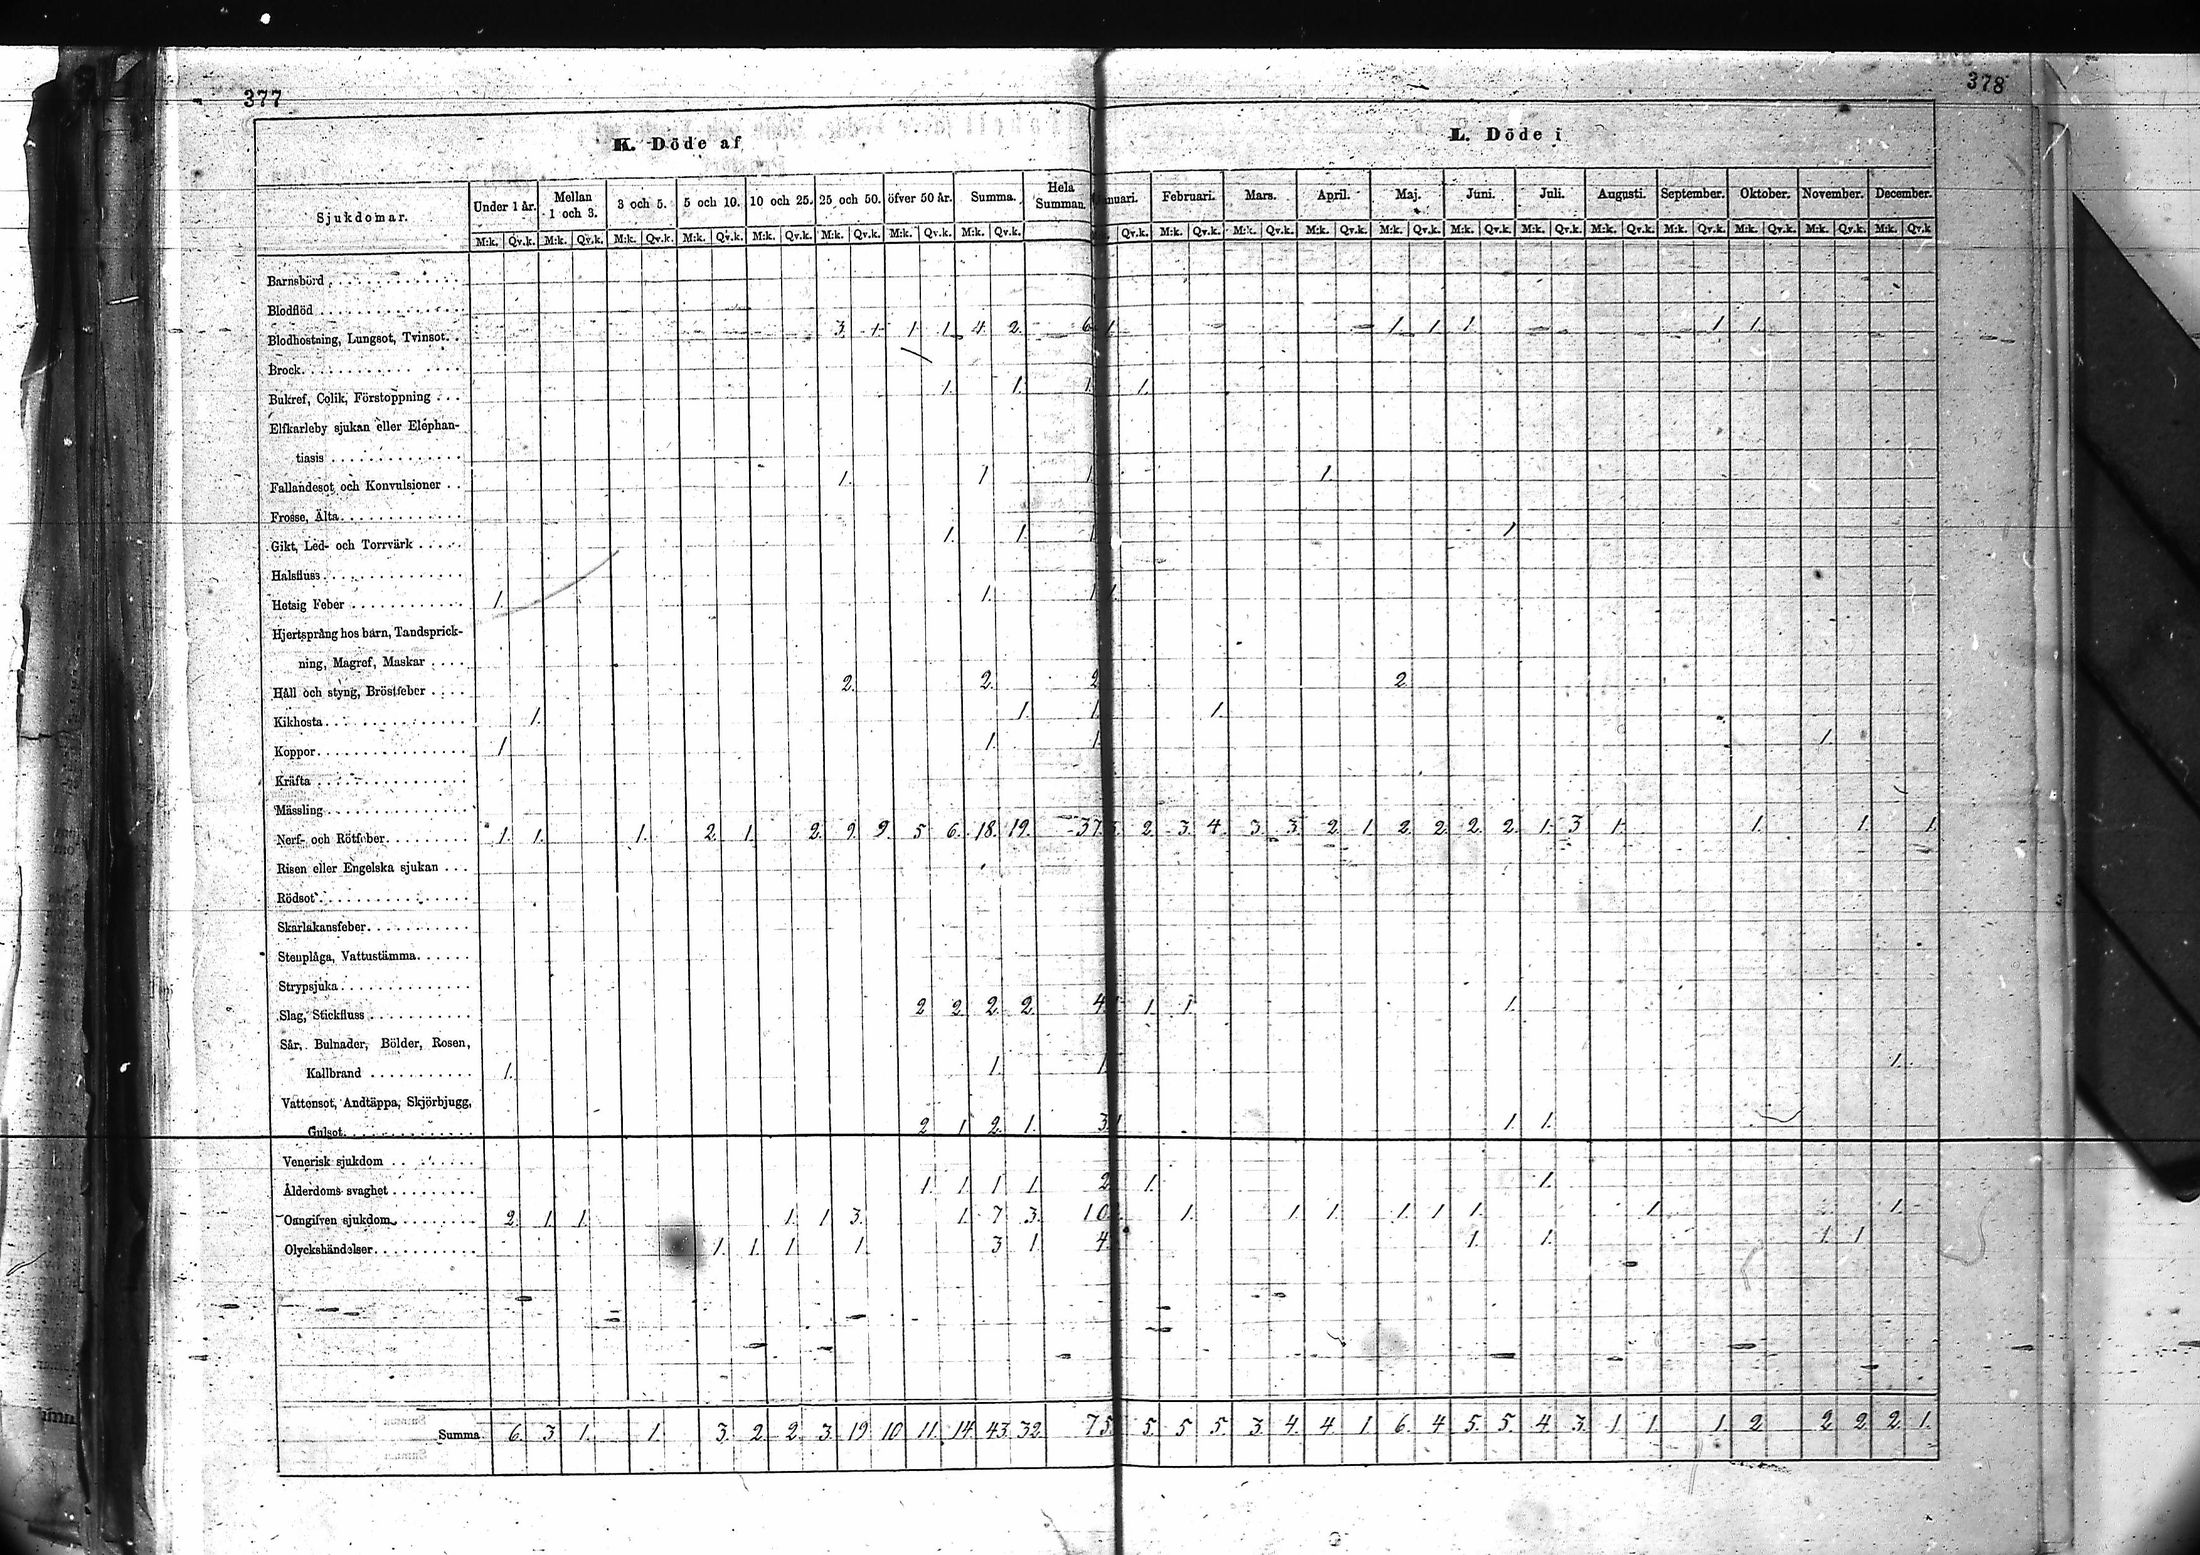 377
378
K. Döde af
L. Döde i
Sjukdomar. Under 1 år. Mellan 1 och 3. 3 och 5. 5 och 10. 10 och 25. 25 och 50. öfver 50 år. Summa. Hela Summan. Februari. Mars. April. Maj. Juni. Juli. Augusti. September. Oktober. November. December.
M:k. Qv.k. M:k. Qv.k. M:k. Qv.k. M:k. Qv.k. M:k. Qv.k. M:k. Qv.k. M:k. Qv.k. M:k. Qv.k. Qv.k. M:k. Qv.k. M:k. Qv.k. M:k. Qv.k. M:k. Qv.k. M:k. Qv.k. M:k. Qv.k. M:k. Qv.k. M:k. Qv.k. M:k. Qv.k. M:k. Qv.k. M:k. Qv.k
Barnsbörd
Blodflöd
Blodhostning, Lungsot, Tvinsot. 3. 1. 1. 1. 4. 2. 6. 1. 1. 1. 1. 1. 1.
Brock
Bukref, Colik, Förstoppning 1. 1. 1. 1.
Elfkarleby sjukan eller Elephan-
tiasis
Fallandesot och Konvulsioner 1. 1 1 1.
Frosse, Älta
Gikt, Led- och Torrvärk 1. 1. 1 1
Halsfluss
Hetsig Feber 1. 1. 1 1.
Hjertsprång hos barn, Tandsprick-
ning, Magref, Maskar
Håll och styng, Bröstfeber 2. 2. 2 2
Kikhosta 1. 1. 1. 1.
Koppor 1 1. 1. 1.
Kräfta
Mässling
Nerf- och Rötfeber 1. 1. 1. 2. 1. 2. 9. 9. 5 6. 18. 19. 37 2. 3. 4. 3. 3. 2. 1. 2. 2. 2. 2. 1. 3 1. 1. 1. 1.
Risen eller Engelska sjukan
Rödsot
Skarlakansfeber
Stenplåga, Vattustämma
Strypsjuka
Slag, Stickfluss 2 2 2. 2. 4 1. 1. 1.
Sår, Bulnader, Bölder, Rosen,
Kallbrand 1. 1. 1. 1.
Vattensot, Andtäppa, Skjörbjugg,
Gulsot 2 1 2. 1. 3 1 1 1.
Venerisk sjukdom
Ålderdoms svaghet 1. 1. 1 1. 2 1. 1.
Oangifven sjukdom 2. 1. 1. 1. 1 3. 1. 7 3. 10 1. 1. 1. 1. 1. 1. 1. 1.
Olyckshändelser 1. 1. 1. 1. 3 1. 4. 1. 1. 1. 1.
Summa 6. 3 1. 1. 3. 2. 2. 3. 19. 10 11. 14. 43. 32. 75. 5. 5. 5. 3. 4. 4. 1. 6. 4. 5. 5. 4. 3. 1 1. 1. 2 2 2. 2. 1.